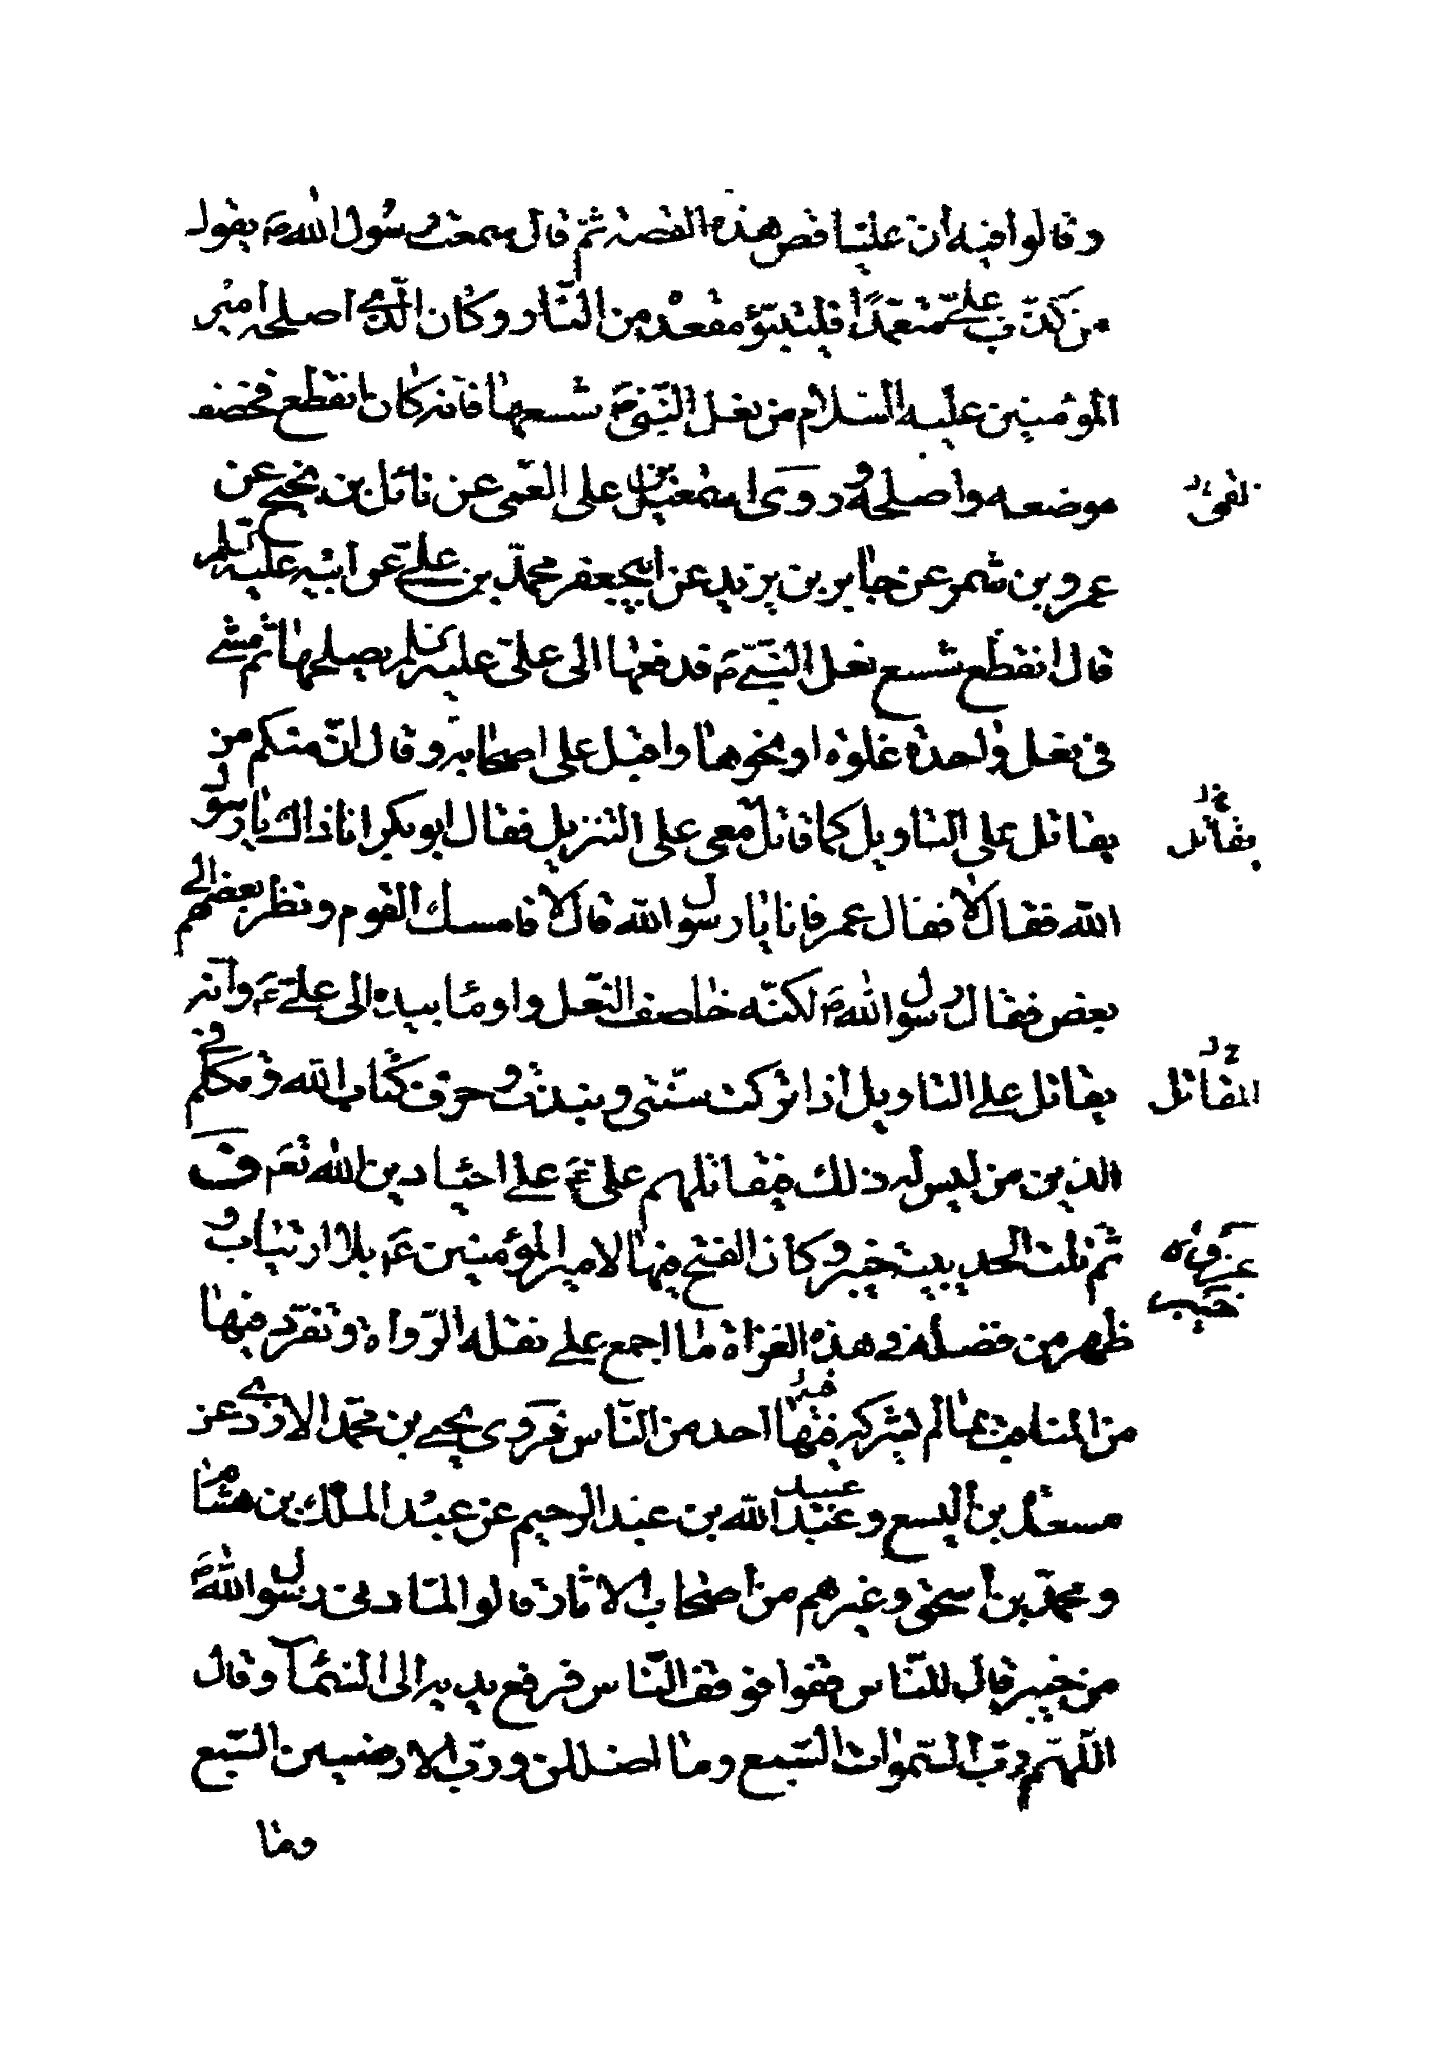 وقالوا فيه أن عليا قص هذه القصة ثم قال سمعت رسول الله ص يقول
من كذب علي متعمدا فليتبوء مقعده من النار وكان الذي اصلحه امير
المؤمنين عليه السلام من نعل النبي ص شسعها فانه كان انقطع فخصف
موضعه واصلحه وروى اسمعيل بن علي العمي عن نائل بن نجيح عن
القمي
عمرو بن شمر عن جابر بن يزيد عن ابيجعفر محمد بن علي عن ابيه عليه السلم
قال انقطع شسع نعل النبي ص فدفعها الى علي عليه السلم يصلحها ثم مشى
في نعل واحدة غلوة او نحوها واقبل على اصحابه وقال ان منكم من
يقاتل على التاويل كما قاتل معي على التنزيل فقال ابو بكر انا ذاك يا رسول
يقاتل
الله فقال لا فقال عمر فانا يا رسول الله قال لا فامسك القوم ونظر بعضهم الى
بعض فقال رسول الله ص لكنه خاصف النعل واوما بيده الى علي ع وانه
يقاتل على التاويل اذا تركت سنتي ونبذت وحرف كتاب الله وتكلم في
المقاتل
الدين من ليس له ذلك فيقاتلهم علي ع على احياء دين الله تع ف
ثم تلت الحديبية خيبر وكان الفتح فيها لامير المؤمنين ع بلا ارتياب و
غزوة خيبر
ظهر من فضله في هذه الغزاة ما اجمع على نقله الرواة وتفرد فيها
من المناقب بما لم يشركه فيها احد من الناس فروى يحيى بن محمد الازدي عن
فيه
مسعدة بن اليسع وعبد الله بن عبد الرحيم عن عبد الملك بن هشام
عبيد
ومحمد بن اسحق وغيرهم من اصحاب الاثار قالوا لما دنى رسول الله ص
من خيبر قال للناس قفوا فوقف الناس فرفع يديه الى السماء وقال
اللهم رب السموات السبع وما اضللن ورب الارضين السبع
وما